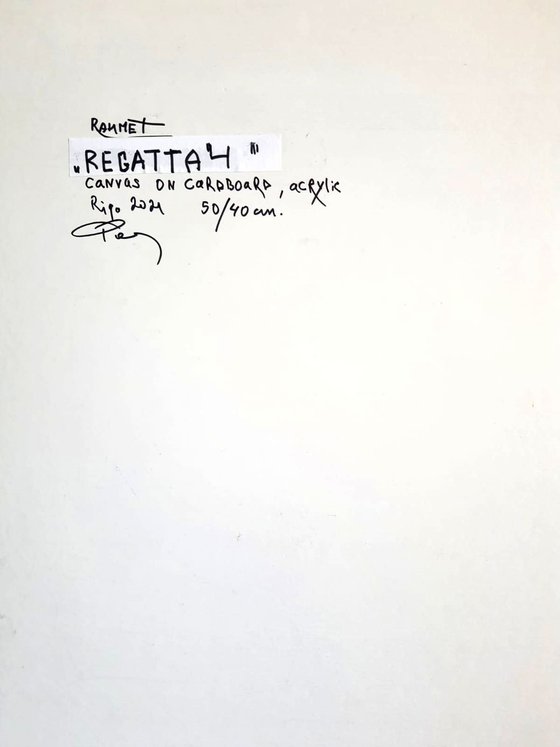 RAHMET
„REGATTA"4"
CANVAS ON CARDBOARD, ACRYLIC
Riga 2021 50/40 cm.